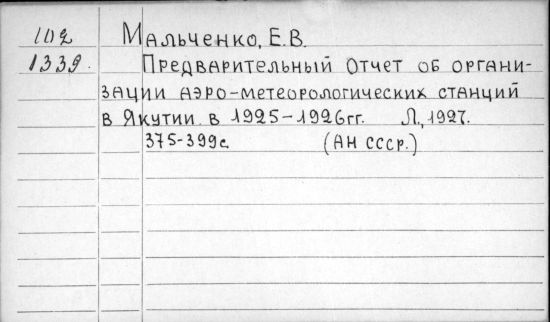 102 Мальченко, Е.В.
1339. Предварительный отчет об органи-
зации аэро-метеорологических станций
в Якутии в 1925-1926гг. Л., 1927.
375-399с. (АН СССР.)